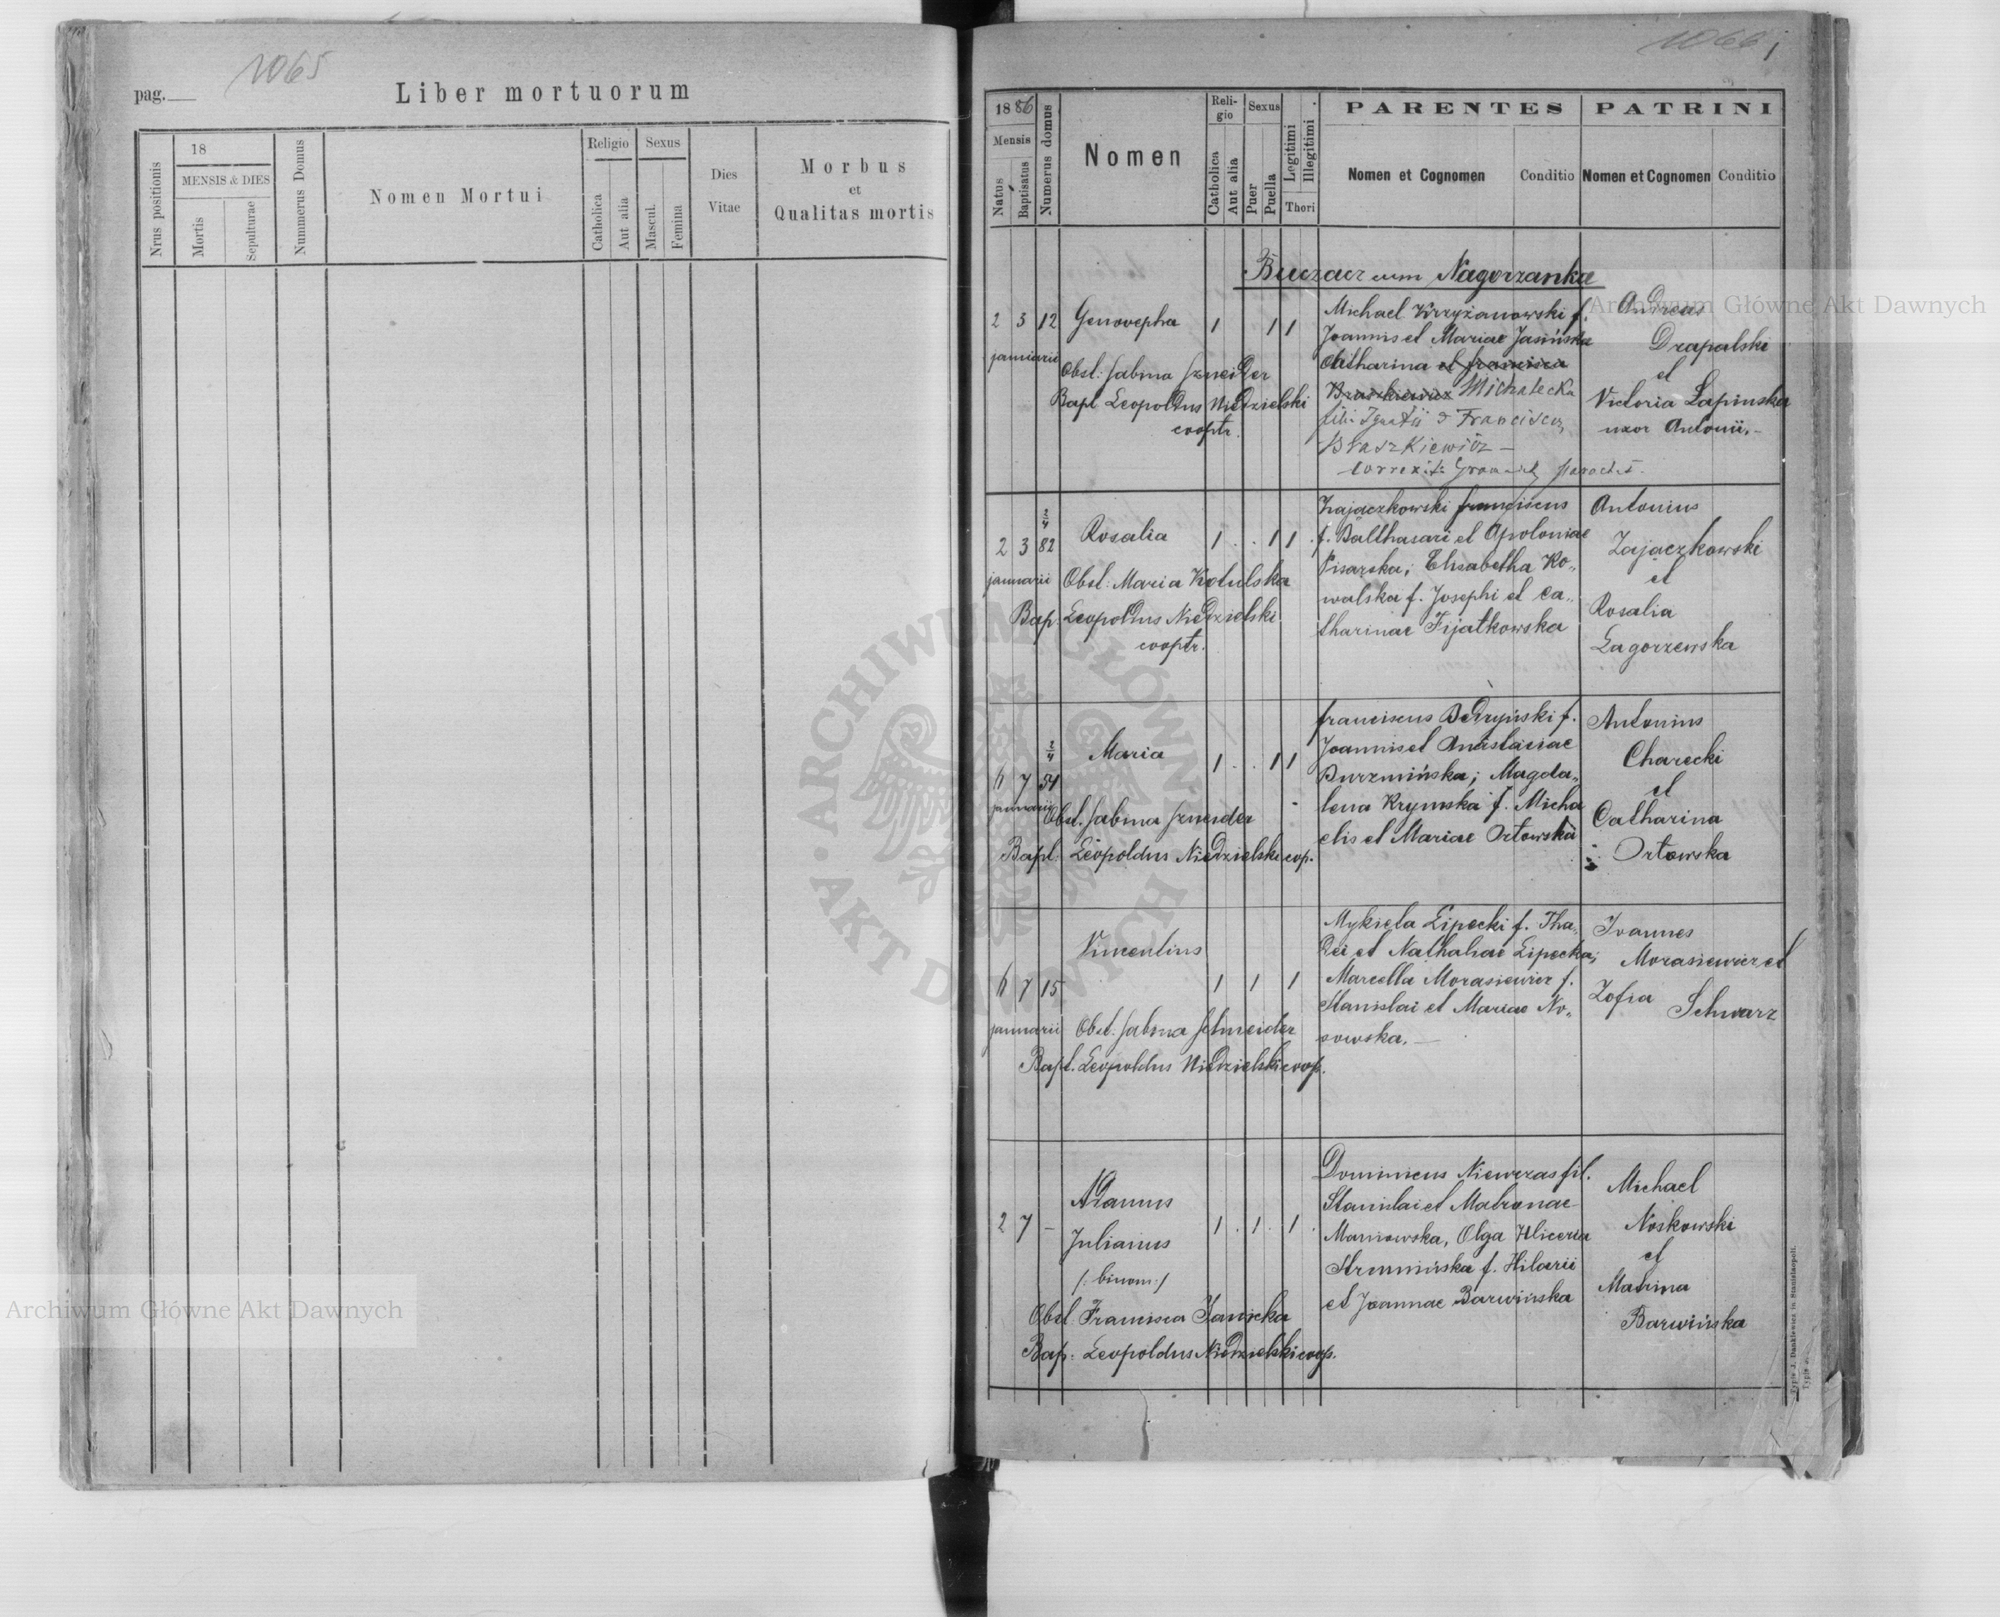 1065
pag.
Liber mortuorum
Nrus positionis
18
MENSIS & DIES
Mortis
Sepulturae
Nummerus Domus
Nomen Mortui
Religio
Catholica
Aut alia
Sexus
Mascul.
Femina
Dies
Vitae
Morbus
et
Qualitas mortis
1066
1
1886
Mensis
Natus
Baptisatus
Numerus domus
Nomen
Reli-
gio
Catholica
Aut alia
Sexus
Puer
Puella
Legitimi
Illegitimi
Thori
PARENTES
Nomen et Cognomen
Conditio
PATRINI
Nomen et Cognomen
Conditio
Buczacz cum Nagorzanka
2 3 12
januarii
Genovepha
1 1 1
Obst: Sabina Szneider
Bapt Leopoldus Niedzielski
cooptr.
Michael Krzyżanowski f.
Joannis et Mariae Jasińska
Catharina et Francisca
Braszkiewicz Michalecka
filia Ignatii & Francisca
Braszkiewicz —
correxit parochus.
Andreas
Drapalski
et
Victoria Łapinska
uxor Antonii.-
2 3 82
januarii
Rosalia
1 1 1
Obst: Maria Kotulska
Bap. Leopoldus Niedzielski
cooptr.
Zajaczkowski Franciscus
f. Balthasari et Apoloniae
Pisarska; Elisabetha Ko„
walska f. Josephi et Ca„
tharinae Fijałkowska
Antonius
Zajaczkowski
et
Rosalia
Łagorzewska
6 7 54
januarii
Maria
1 1 1
Obst. Sabina Szneider
Bapt. Leopoldus Niedzielski cop.
Franciscus Bedryński f.
Joannis et Anastasiae
Burzmińska; Magda„
lena Krymska f. Micha
elis et Mariae Orłowska
Antonius
Charecki
et
Catharina
Orłowska
6 7 15
januarii
Vincentius
1 1 1
Obst. Sabina Schneider
Bapt. Leopoldus Niedzielski coop.
Mykieta Lipecki f. Tha„
dei et Nathaliae Lipecka;
Marcella Morasiewicz f.
Stanislai et Mariae No„
sowska. —
Joannes
Morasiewicz et
Zofia
Schwarz
2 7 –
Adamus
Julianus
/: binom :/
1 1 1
Obst. Francisca Janicka
Bap. Leopoldus Niedzielski coop.
Dominicus Niewczas fil.
Stanislai et Matronae
Maniowska, Olga Gliceria
Strumińska f. Hilarii
et Joannae Barwińska
Michael
Noskowski
et
Matrina
Barwińska
Typis J. Dankiewicz in Stanislaopoli.
Archiwum Główne Akt Dawnych
Archiwum Główne Akt Dawnych
ARCHIWUM GŁÓWNE
AKT DAWNYCH